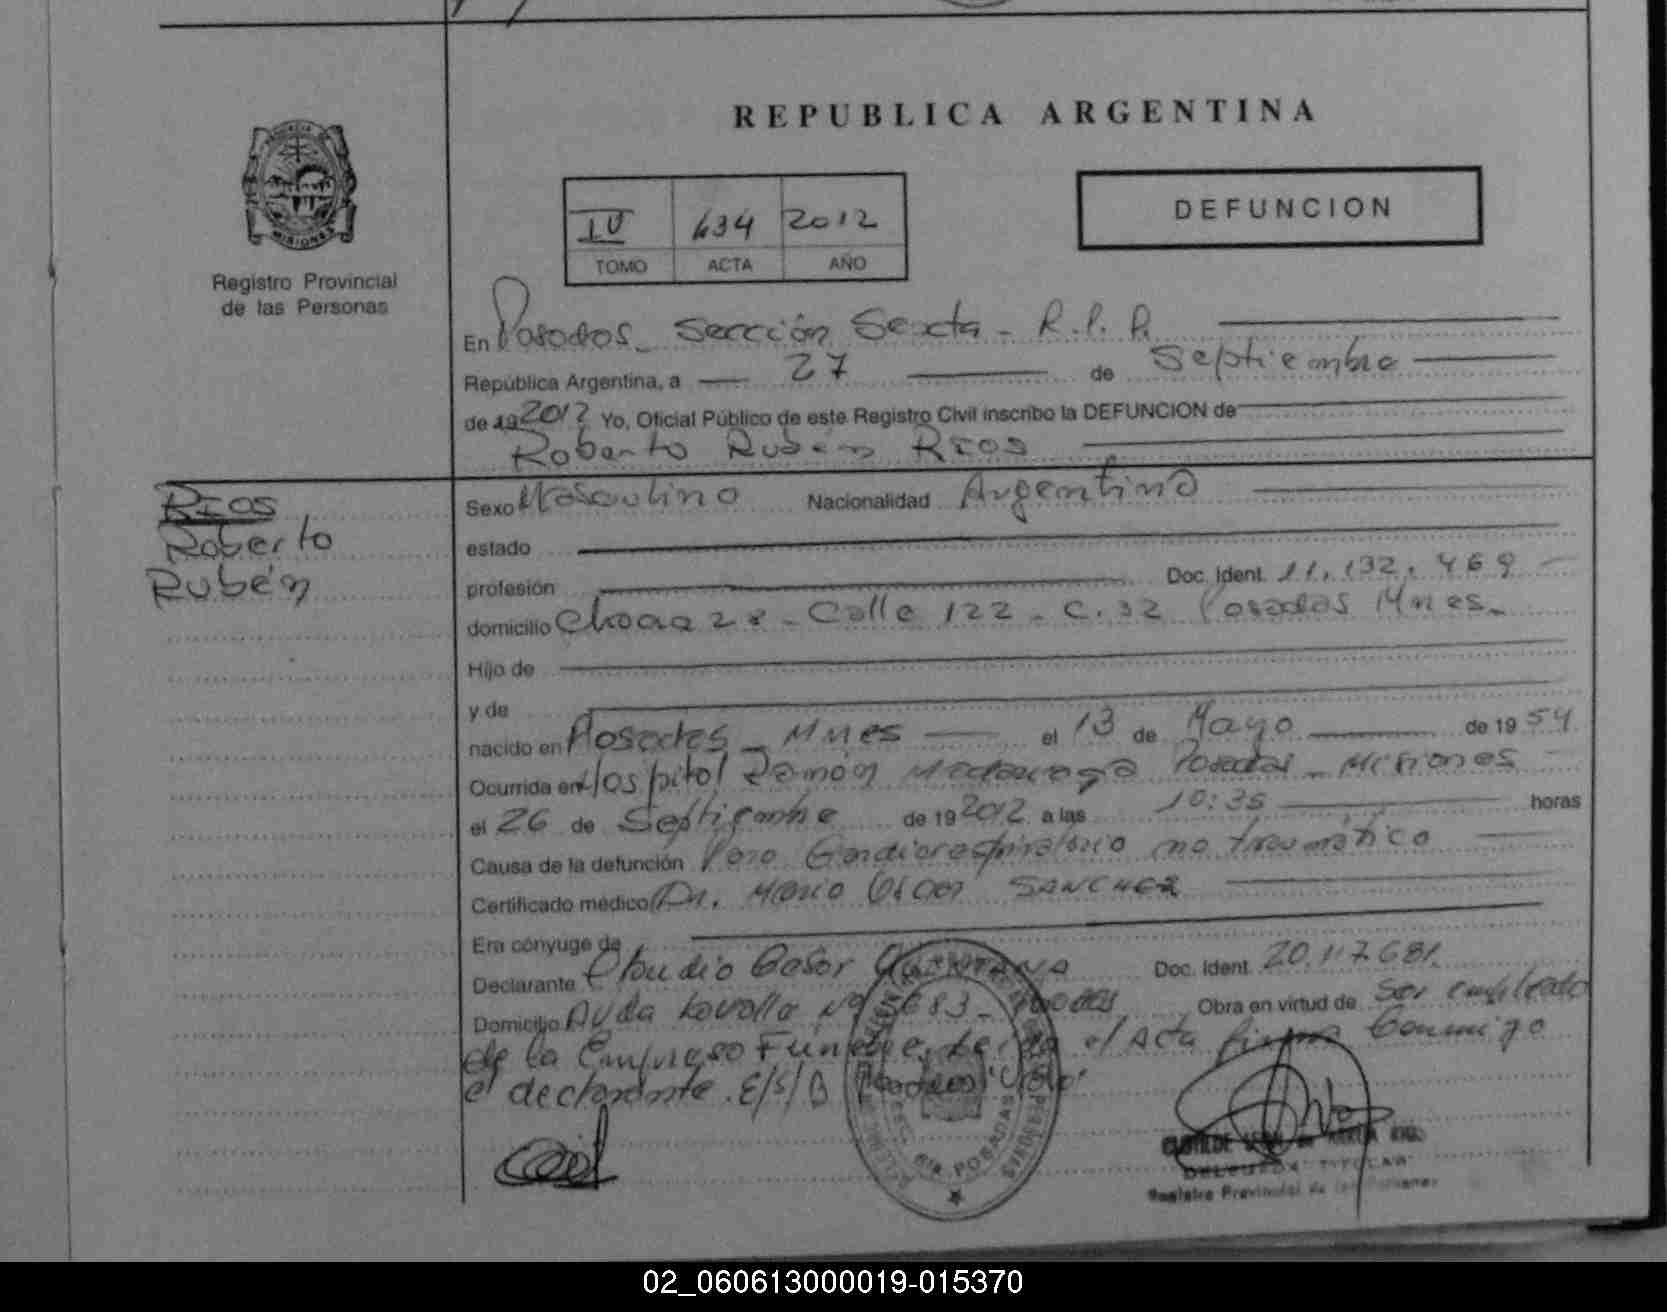 REPUBLICA ARGENTINA
DEFUNCION
IV 434 2012
TOMO ACTA AÑO
MISIONES
Registro Provincial
de las Personas
En Posadas - Sección Sexta - R.P.P.
República Argentina, a 27 de Septiembre
de 19 2012 Yo, Oficial Público de este Registro Civil inscribo la DEFUNCION de
Roberto Rubén RIOS
RIOS
Roberto
Rubén
Sexo Masculino Nacionalidad Argentina
estado
profesión Doc. Ident. 11.132.469
domicilio Chacra 28 - Calle 122 - C. 32 Posadas Mnes.
Hijo de
y de
nacido en Posadas - Mnes el 13 de Mayo de 19 54
Ocurrida en Hospital Ramón Madariaga Posadas - Misiones
el 26 de Septiembre de 19 2012 a las 10:35 horas
Causa de la defunción Paro Cardiorespiratorio no traumático
Certificado médico Dr. Mario Oscar SANCHEZ
Era cónyuge de
Declarante Claudio Cesar QUINTANA Doc. Ident. 20.117.681.
Domicilio Avda Lavalle Nº 683 - Posadas Obra en virtud de Ser empleado
de la Empresa Fúnebre. Leída el Acta firma Conmigo
el declarante. E/S/B Posadas "Vale"
6ta POSADAS
DELEGADA TITULAR
Registro Provincial de las Personas
02_060613000019-015370